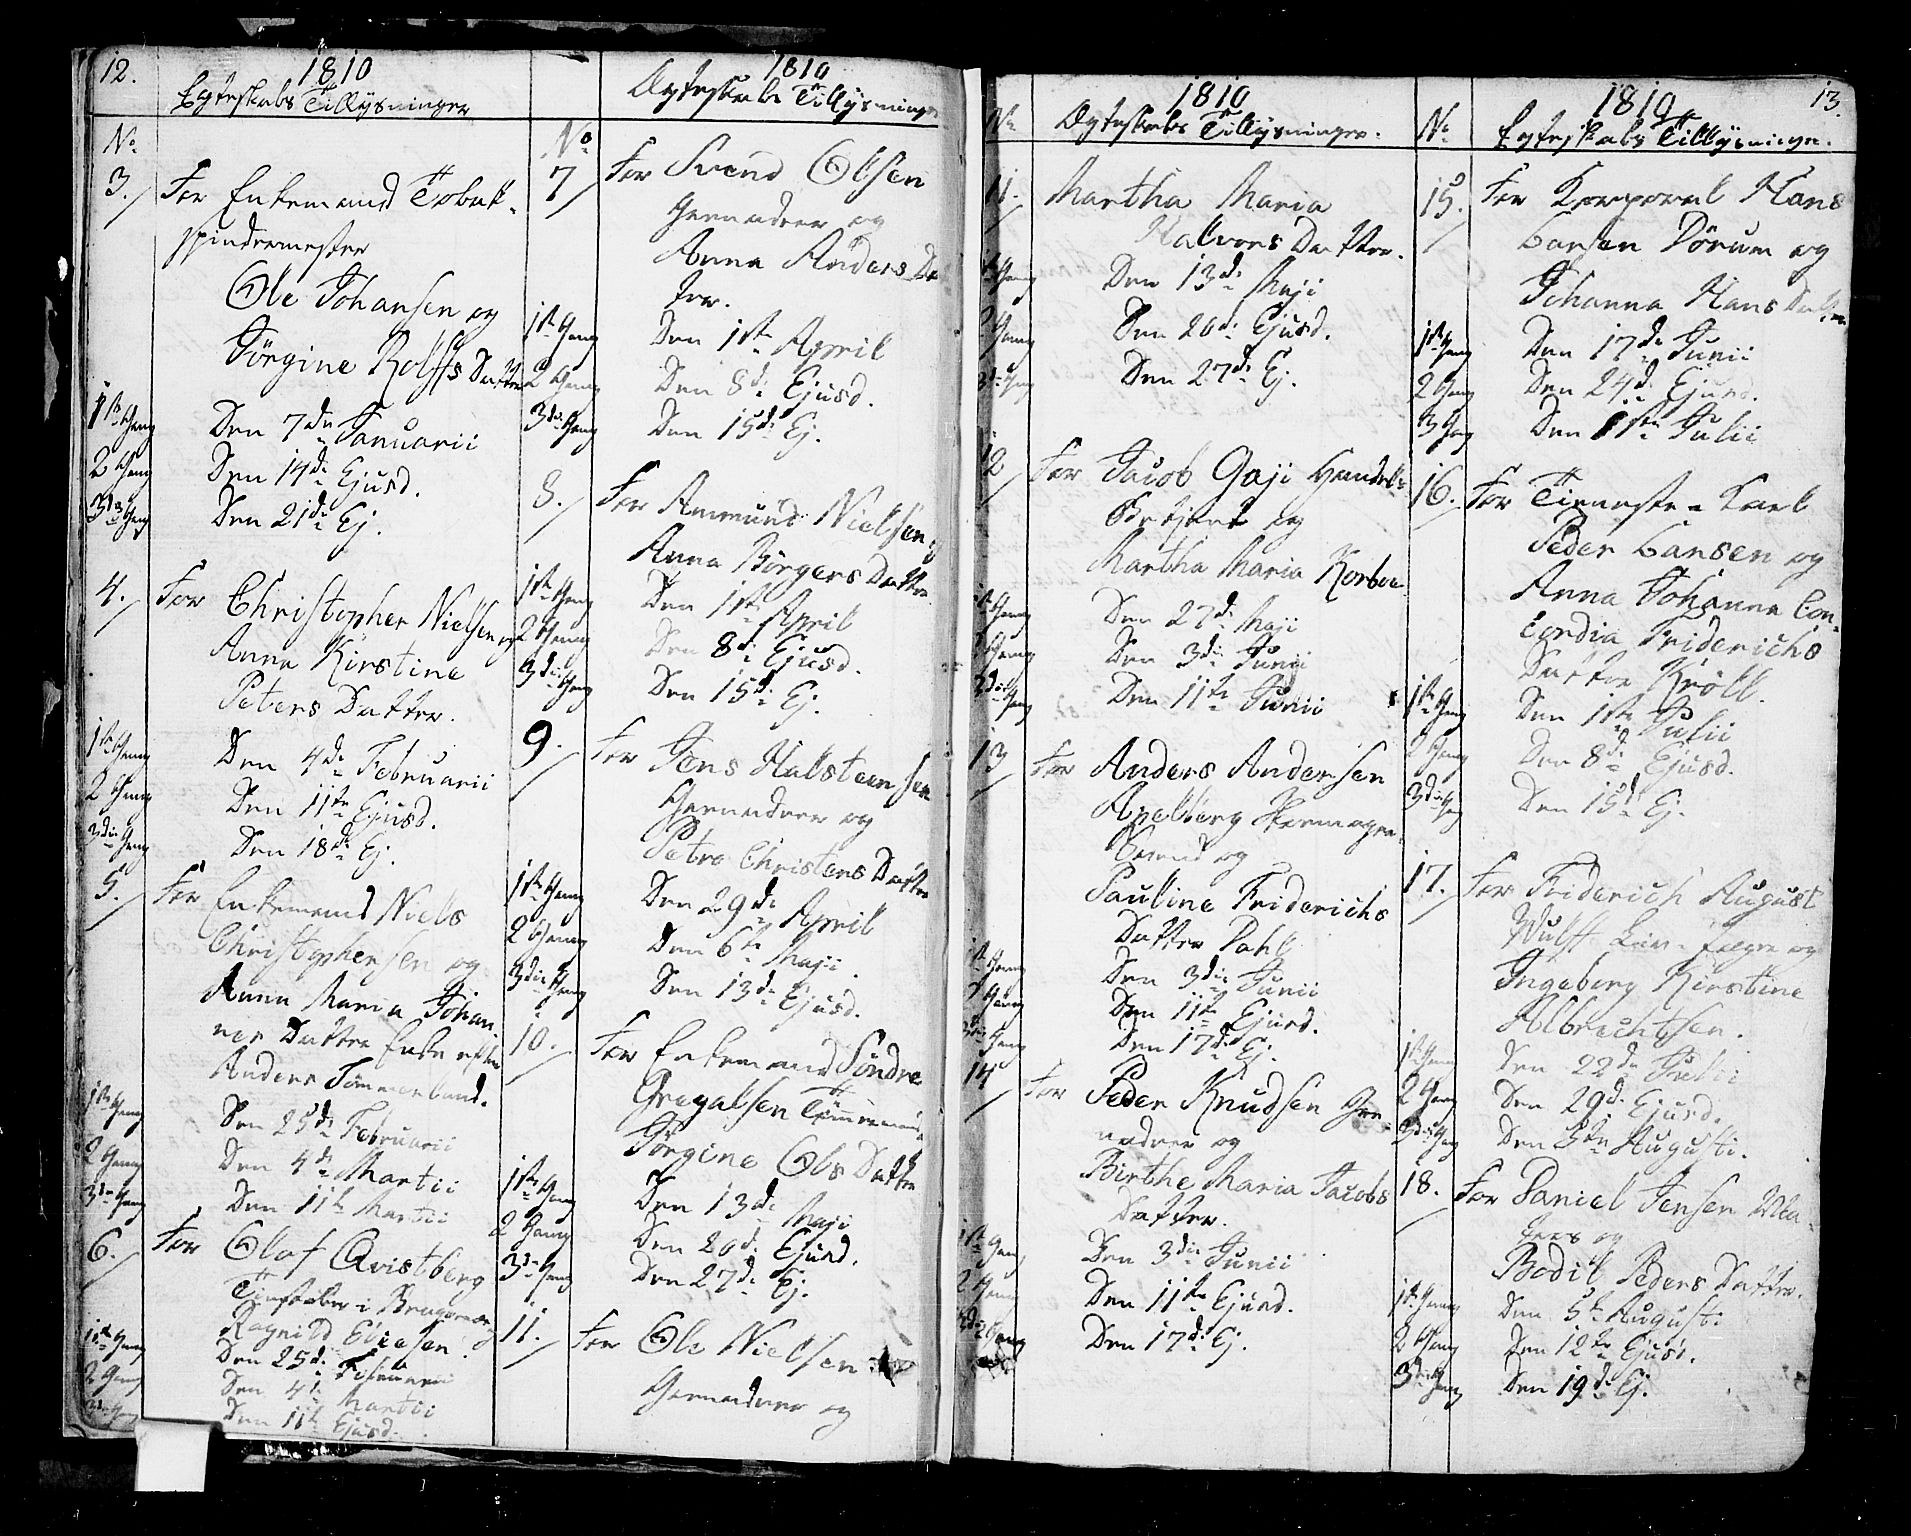 12.
1810
Egteskabs Tillysninger
No
3. For Enkemand Tobak-
spindermester
Ole Johansen og
Jörgine Rolfs Datter
1ste Gang Den 7de Januarii
2 Gang Den 14de Ejusd.
3die Gang Den 21de Ej.
4. For Christopher Nielsen og
Anna Kirstine
Peters Datter.
1ste Gang Den 4de Februarii
2 Gang Den 11te Ejusd.
3die Gang Den 18de Ej.
5. For Enkemand Niels
Christophersen og
Anna Maria Johan-
nes Datter Enke efter
Anders Tömmerland.
1ste Gang Den 25de Februarii
2 Gang Den 4de Martii
3die Gang Den 11te Martii
6. For Olof Qvistberg
i
Ragnild
1ste Gang Den 25de Februarii
2 Gang Den 4de Martii
3die Gang Den 11te Ejusd.
1810
Ægteskabs Tillysninger
No
7 For Svend Olsen
Grenadeer og
Anna Anders Dat
ter.
1ste Gang Den 1ste April
2 Gang Den 8de Ejusd.
3die Gang Den 15de Ej.
8. For Ammund Nielsen og
Anna Börgers Datter
1ste Gang Den 1ste April
2 Gang Den 8de Ejusd.
3die Gang Den 15de Ej.
9. For Jens Halsteensen
Grenadeer og
Petra Christens Datter
1ste Gang Den 29de April
2 Gang Den 6te Maji.
3die Gang Den 13de Ejusd.
10. For Enkemand Söndre
Gregalsen Tömmermand
Jörgine Ols Datter
1ste Gang Den 13de Maji
2 Gang Den 20de Ejusd.
3die Gang Den 27de Ej.
11. For Ole Nielsen
Grenadeer og
1810
No Ægteskabs Tillysninger.
11. Martha Maria
Halvors Datter.
1ste Gang Den 13de Maji
2 Gang Den 20de Ejusd.
3die Gang Den 27de Ej.
12 For Jacob Gaji Handels
Betjent og
Martha Maria Korboe
1ste Gang Den 27de Maji
2 Gang Den 3die Junii
3die Gang Den 11te Junii
13 For Anders Andersen
Apelberg Skomager
Svend og
Pauline Friderichs
Datter Dahl
1ste Gang Den 3die Junii
2 Gang Den 11te Ejusd.
3die Gang Den 17de Ej.
14 For Peder Knudsen Gre-
nadeer og
Birthe Maria Jacobs
Datter.
1ste Gang Den 3die Junii
2 Gang Den 11te Ejusd.
3die Gang Den 17de Ej.
1810
13.
No Egteskabs Tillysninger.
15. For Korporal Hans
Larsen Dörum og
Johanna Hans Datter
1ste Gang Den 17de Junii
2 Gang Den 24de Ejusd.
3 Gang Den 1ste Julii
16. For Tieneste-Karl
Peder Larsen og
Anna Johanna Con-
cordia Friderichs
Datter Kröll.
1ste Gang Den 1ste Julii
2 Gang Den 8de Ejusd.
3die Gang Den 15de Ej.
17. For Friderich August
Wulff og
Ingeborg Kirstine
Albrechtsen.
1ste Gang Den 22de Julii
2 Gang Den 29de Ejusd.
3die Gang Den 5te Augusti.
18. For Daniel Jensen
og
Bodil Peders Datter.
1ste Gang Den 5te Augusti
2 Gang Den 12te Ejusd.
3die Gang Den 19de Ej.